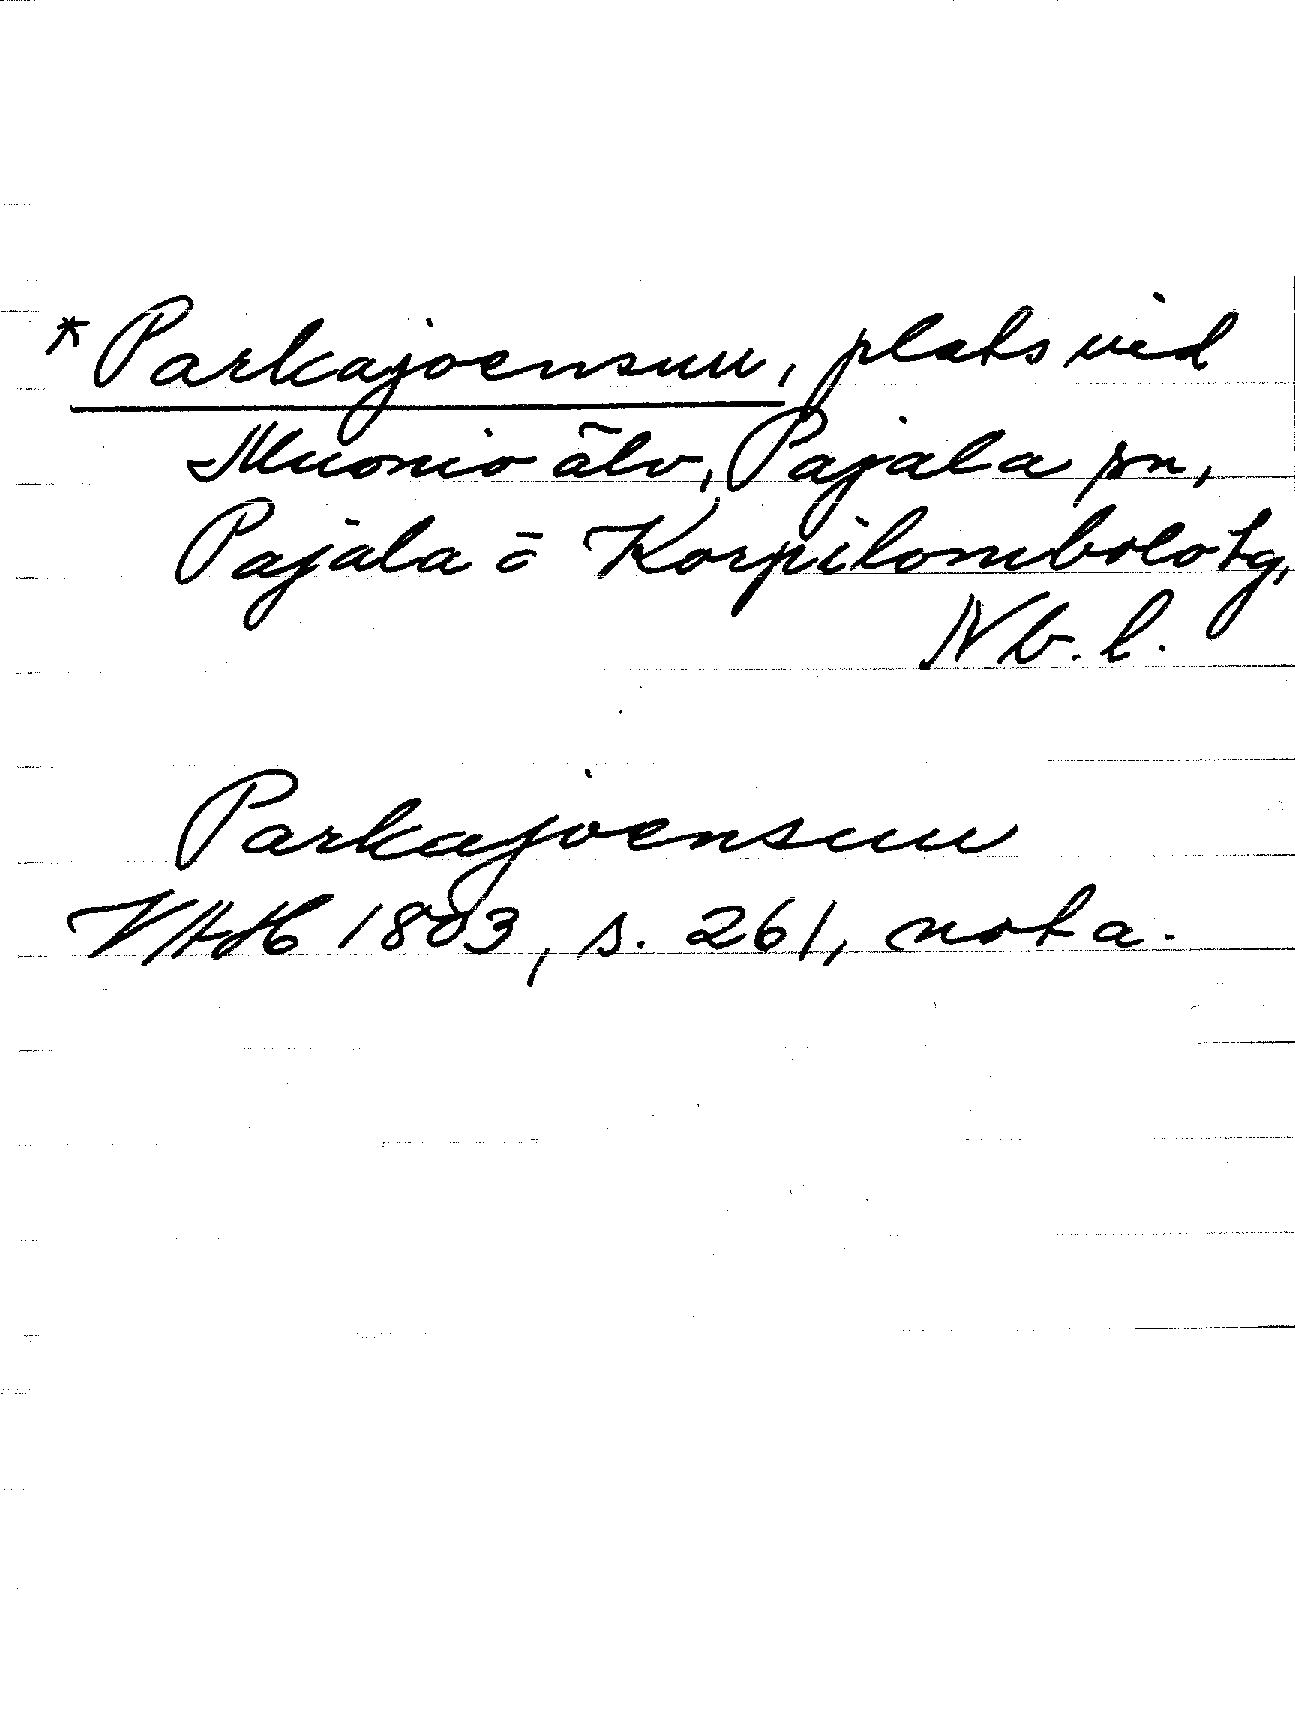 * Parkajoensuu, plats vid
Muonio älv, Pajala sn,
Pajala o Korpilombolo tg,
Nb. l.
Parkajoensuu
VAH 1803, s. 261, nota.